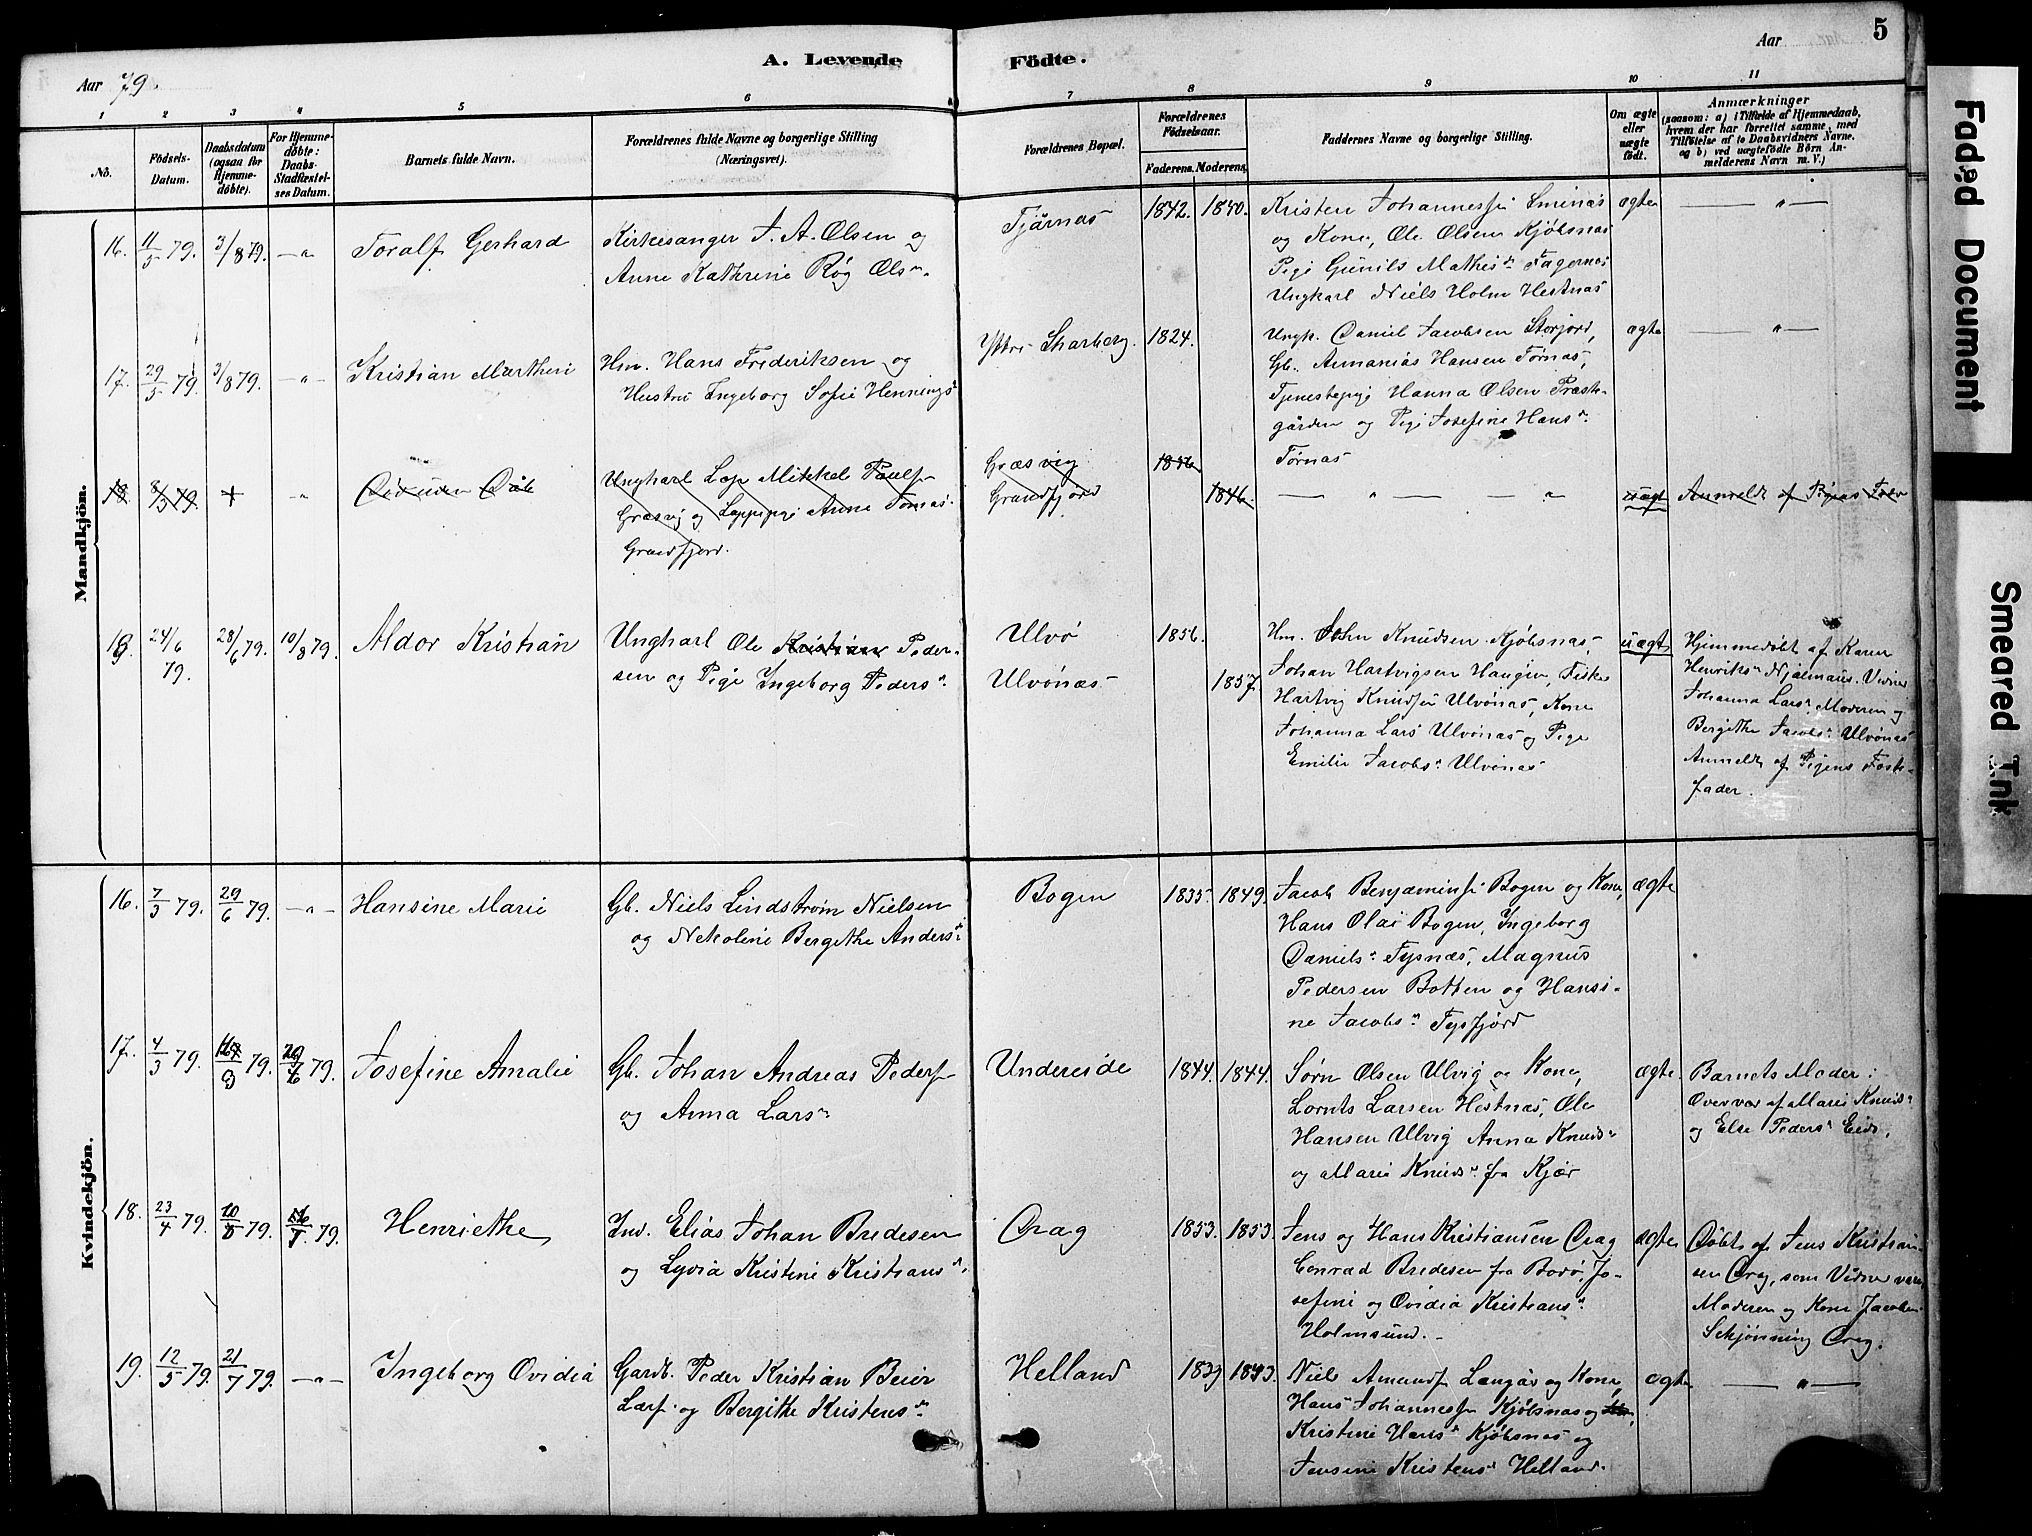 5
Aar 79.
A. Levende
Födte.
Aar
1 2 3 4 5 6 7 8 9 10 11
No.
Födsels-
Datum.
Daabsdatum
(ogsaa for
Hjemme-
döbte).
For Hjemme-
döbte:
Daabs-
Stadfæstel-
ses Datum.
Barnets fulde Navn.
Forældrenes fulde Navne og borgerlige Stilling
(Næringsvei).
Forældrenes Bopæl.
Forældrenes
Födselsaar.
Faderens. Moderens.
Faddernes Navne og borgerlige Stilling.
Om ægte
eller
uægte
födt.
Anmærkninger
(saasom: a) i Tilfælde af Hjemmedaab,
hvem der har forrettet samme, med
Tilföielse af to Daabsvidners Navne,
og b) ved uægtefödte Börn An-
melderens Navn m. V.)
Mandkjön.
16. 11/5 79. 3/8 79. —"— Toralf Gerhard
Kirkesanger J. A. Olsen og
Anne Kathrine Røg Olsn.
Tjärnæs
1842. 1850.
Kristen Johannessen
og Kone, Ole Olsen Kjöbsnæs
Pige Gunild Mathisn Fagernes
Ungkarl Niels Holm Hestnæs
ægte
— " —
17. 29/5 79. 3/8 79. —"— Kristian Martheni
Hm. Hans Frederiksen og
Hustru Ingeborg Sofie Hennings
Yttre Skarberg.
1824.
Ungk. Daniel Jacobsen Storjord,
Gb. Annanias Hansen Törnæs,
Tjenestepige Hanna Olsen Præste-
gården og Pige Josefine Hansn
Törnæs
ægte
— " —
18. 8/3 79. + " Död uden Dåb
Ungkarl Lap Mikkel Paulsen
Græsvig og Lappepige Anne Tomas.
Grundfjord.
Græsvig
Grundfjord
1846.
— " — — "
uægt
Anmeldt af Pigens
19. 24/6 79. 28/6 79. 10/8 79. Aldor Kristian
Ungkarl Ole Kristian Peder-
sen og Pige Ingeborg Pedersn
Ulvö
Ulvönæs
1856.
1857.
Hm. John Knudsen Kjöbsnæs,
Johan Hartvigsen Haugen, Fisker
Hartvig Knudsen Ulvönæs, Kone
Johanna Lars Ulvönæs og Pige
Emilie Jacobsn Ulvönæs
uægt
Hjemmedöbt af Karen
Henriksn Vidner
Johanna Larsn, Moderen og
Bergithe Jacobsn Ulvönæs
Anmeldt af Pigens Foster-
fader.
Kvindekjön.
16. 7/3 79. 29/6 79. —"— Hansine Marie
Gb. Niels Lindström Nielsen
og Nekoline Bergithe Andersn
Bogen
1835. 1849.
Jacob Benjaminsen Bogen og Kone,
Hans Olai Bogen, Ingeborg
Danielsn Tysnæs, Magnus
Pedersen Botten og Hansi-
ne Jacobsn Tysfjörd
ægte
17. 4/3 79. 79. 29/6 79. Josefine Amalie
Gb. Johan Andreas Peders
og Anna Larsn
Undereide
1844. 1844.
Sörn Olsen Ulvig og Kone,
Lornts Larsen Hestnæs, Ole
Hansen Ulvig Anna Knudsn
og Marie Knudsn fra Kjær
ægte
Barnets Moder i
Overvær af Marie Knudsn
og Else Pedersn Eide.
18. 23/4 79. 79. 79. Henriethe
Ind. Elias Johan Bredesen
og Lydia Kristine Kristiansn.
Drag
1853. 1853.
Jens og Hans Kristiansen Drag
Conrad Bredesen fra Bodö. Jo-
sefine og Ovidia Kristiansn
Holmsund.
ægte
Döbt af Jens Kristian-
sen Drag, som Vidner vare
Moderen og Kone Jacob
Schjönning Drag.
19. 12/5 79. 21/7 79. —"— Ingeborg Ovidia
Gardb. Peder Kristian Beier
Lars. og Bergithe Kristensn
Helland
1839 1843.
Niels Amunds Langår og Kone,
Hans Johannessen Kjöbsnæs og
Kristine Hansn Kjöbsnæs og
Jensine Kristensn Helland.
ægte
— " —
Faded Document
Smeared Ink